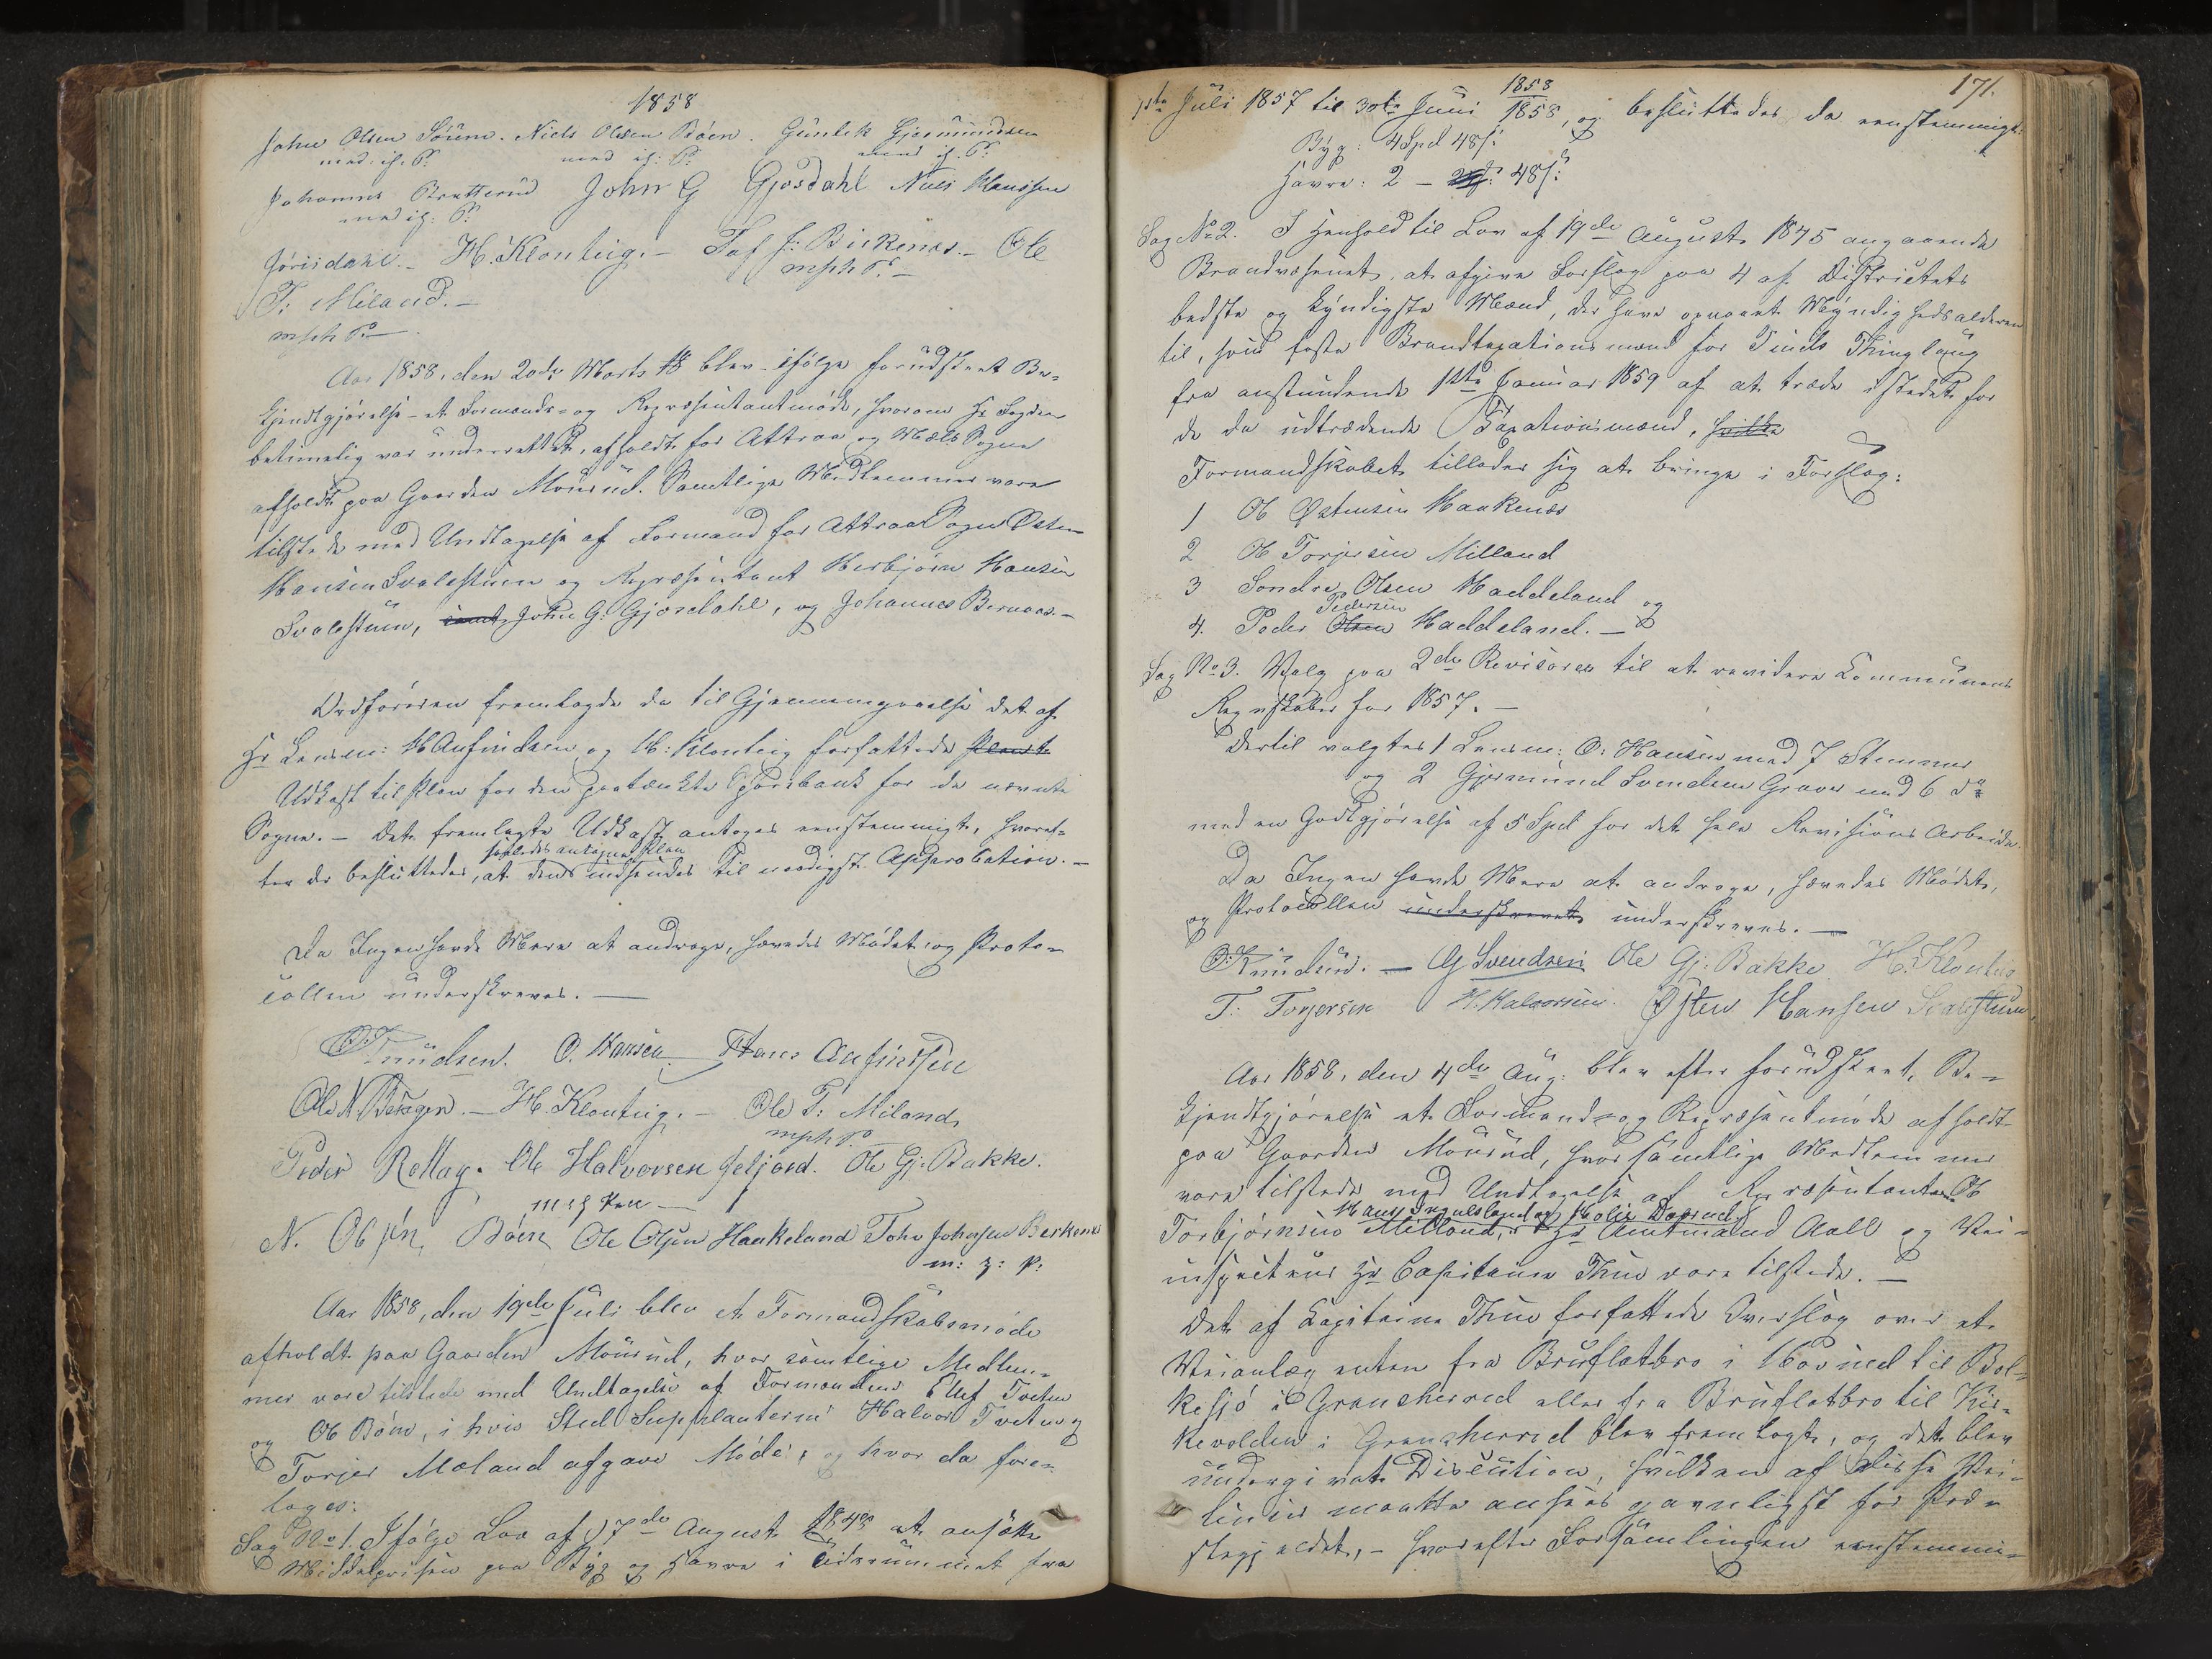 1858
John Olsen Söüm. Niels Olsen Böen. Günlek Gjermündsen
med ih: P: med ih: P: med ih: P:
Johannes Bratterud John G Gjosdahl Niels Klausen
med ih: P:
Jörisdahl. – H. Klonteig. – Tof J: Birkenes. – Ole
mph P. –
T: Miland. –
mph P. –
Aar 1858, den 20de Marts blev ifölge forudskeet Be-
kjendtgjörelse et Formands- og Repræsentantmöde, hvorom Hr Fogden
betimelig var underrettet, afholdt for Attraa og Mæls Sogne
afholdt paa Gaarden Mourüd. Samtlige Medlemmer vare
tilstede med Undtagelse af Formand for Attraa Sogn Østen
Hansen Svalestuen og Repræsentant Herbjörn Hansen
Svalestuen, samt John G. Gjosdahl, og Johannes Bernaas. –
Ordföreren fremlagde da til Gjennemgaaelse det af
Hr Lensm: H Anfindsen og H: Klonteig forfattede
Udkast til Plan for den paatænkte Sparebank for de nævnte
Sogne. – Det fremlagte Udkast antoges eenstemmigt, hvoref-
saaledes antagne Plan
ter der besluttedes, at den indsendes til naadigst Approbation. –
Da Ingen havde Mere at andrage, hævedes Mödet og Proto-
collen underskreves. –
O Knüdsen. O. Hansen Hans Anfindsen
Ole N. Bergen. – H. Klonteig. – Ole T: Miland,
mph P.
Peder Rollag. Ole Halvorsen Seljord. Ole Gj. Bakke.
med Pen –
N. Olsen, Böen Ole Olsen Haakeland Tov Johnsen Berkenes
m: p: p:
Aar 1858, den 19de Juli blev et Formandskabsmöde
afholdt paa Gaarden Mourüd, hvor samtlige Medlem-
mer vare tilstede med Undtagelse af Formændene Ellef Tveten
og Ole Böen, i hvis Sted Supplanterne Halvor Tveten og
Torjer Mæland afgave Möde, og hvor da fore-
toges:
Sag No 1. Ifölge Lov af 17de August 1845 at ansætte
Middelprisen paa Byg og Havre i Tidsrummet fra
171.
1858
1ste Juli 1857 til 30te Juni 1858, og besluttedes da eenstemmigt:
Byg: 4 Spd 48 s:
Havre: 2 – 48 s:
Sag No 2. I Henhold til Lov af 19de August 1845 angaaende
Brandvæsenet, at afgive Forslag paa 4 af Districtets
bedste og kyndigste Mænd, der have opnaaet Myndighedsalderen
til, som faste Brandtaxationsmænd for Tinds Thinglaug
fra anstundende 1ste Januar 1859 af at træde istedet for
de da udtrædende Taxationsmænd, hvilke
Formandskabet tillader sig at bringe i Forslag:
1 Ole Østensen Haakenæs
2 Ole Torjersen Milland
3 Sondre Olsen Haddeland og
Pedersen
4. Peder Olsen Haddeland. –
Sag No 3. Valg paa 2de Revisorer til at revidere Communens
Regnskaber for 1857. –
Dertil valgtes 1 Lensm: O: Hansen med 7 Stemmer
og 2 Gjermund Svendsen Graver med 6 do
med en Godtgjörelse af 5 Spd for det hele Revisions Arbeide.
Da Ingen havde Mere at andrage, hævedes Mödet,
og Protocollen underskrevet underskreves. –
O: Knudsen. – G Svendsen Ole Gj. Bakke H. Klonteig
T. Torjersen H. Halvorsen. Østen Hansen Svalestuen,
Aar 1858, den 4de Aug: blev efter forudskeet Be-
kjendtgjörelse et Formands- og Repræsentmöde afholdt
paa Gaarden Mourüd, hvor samtlige Medlemmer
vare tilstede med Undtagelse af Repræsentanterne Ole
Hans Ingulsland og Dagsrud
Torbjörnsen Milland, Hr Amtmand Aall og Vei-
inspecteur Hr Capitaine Thue vare tilstede. –
Det af Capitaine Thue forfattede Overslag over et
Veianlæg enten fra Bruflatbro i Hovind til Bol-
kesjö i Gransherred eller fra Bruflatbro til Kir-
kevolden i Gransherred blev fremlagt, og det blev
undergivet Discution, hvilken af disse Vei-
linier maatte ansees gavnligst for Præ-
stegjeldet, – hvorefter Forsamlingen eenstemmi-